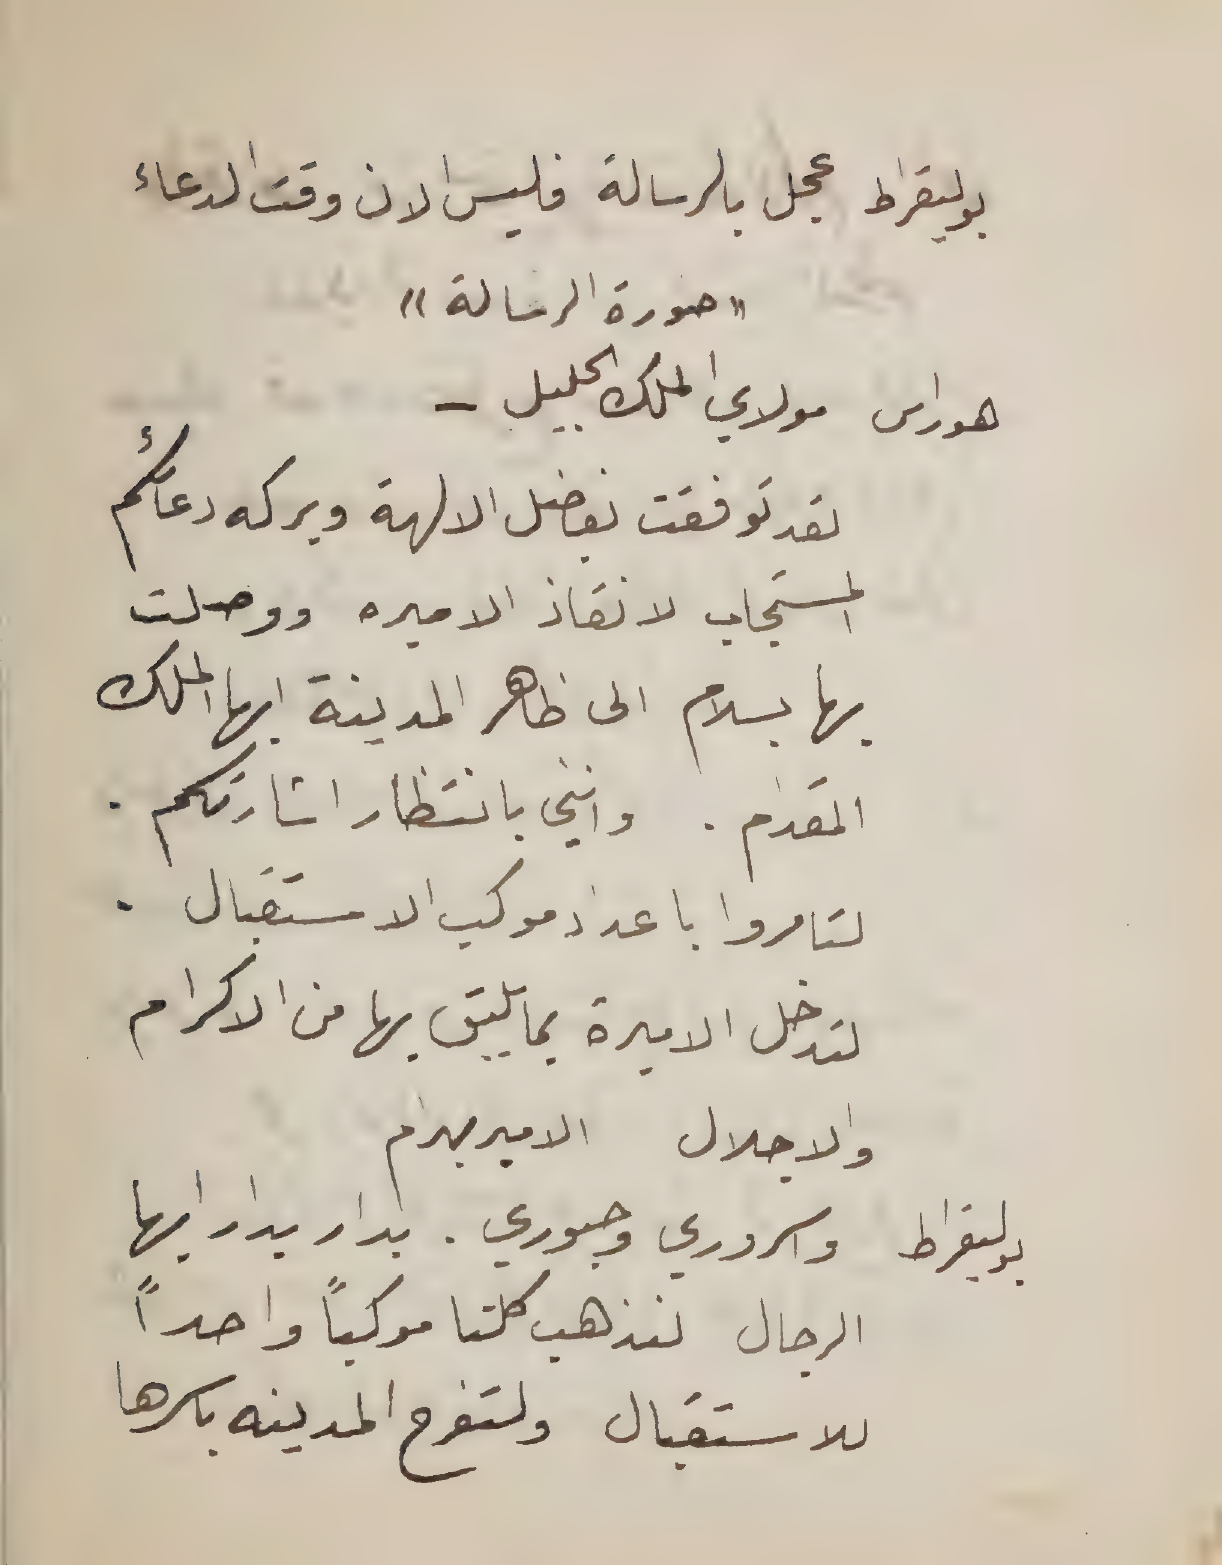 بوليقراط عجل بالرسالة فليس الان وقت الدعاء
«صورة الرسالة»
هوراس مولاي الملك الجليل –
لقد توفقت بفاضل الالهة وبركه دعائكم
المستجاب لانقاذ الاميره ووصلت
بها بسلام الى ظاهر المدينة ايها الملك
المقدام . وانني بانتظار اشارتكم .
لتامروا باعداد موكب الاستقبال .
لتدخل الاميرة بما يليق بها من الاكرام
والاجلال الامير بهرام
بوليقراط واسروري وحبوري . بدار بدار ايها
الرجال لنذهب كلنا موكباً واحداً
للاستقبال ولتفرح المدينه باسرها